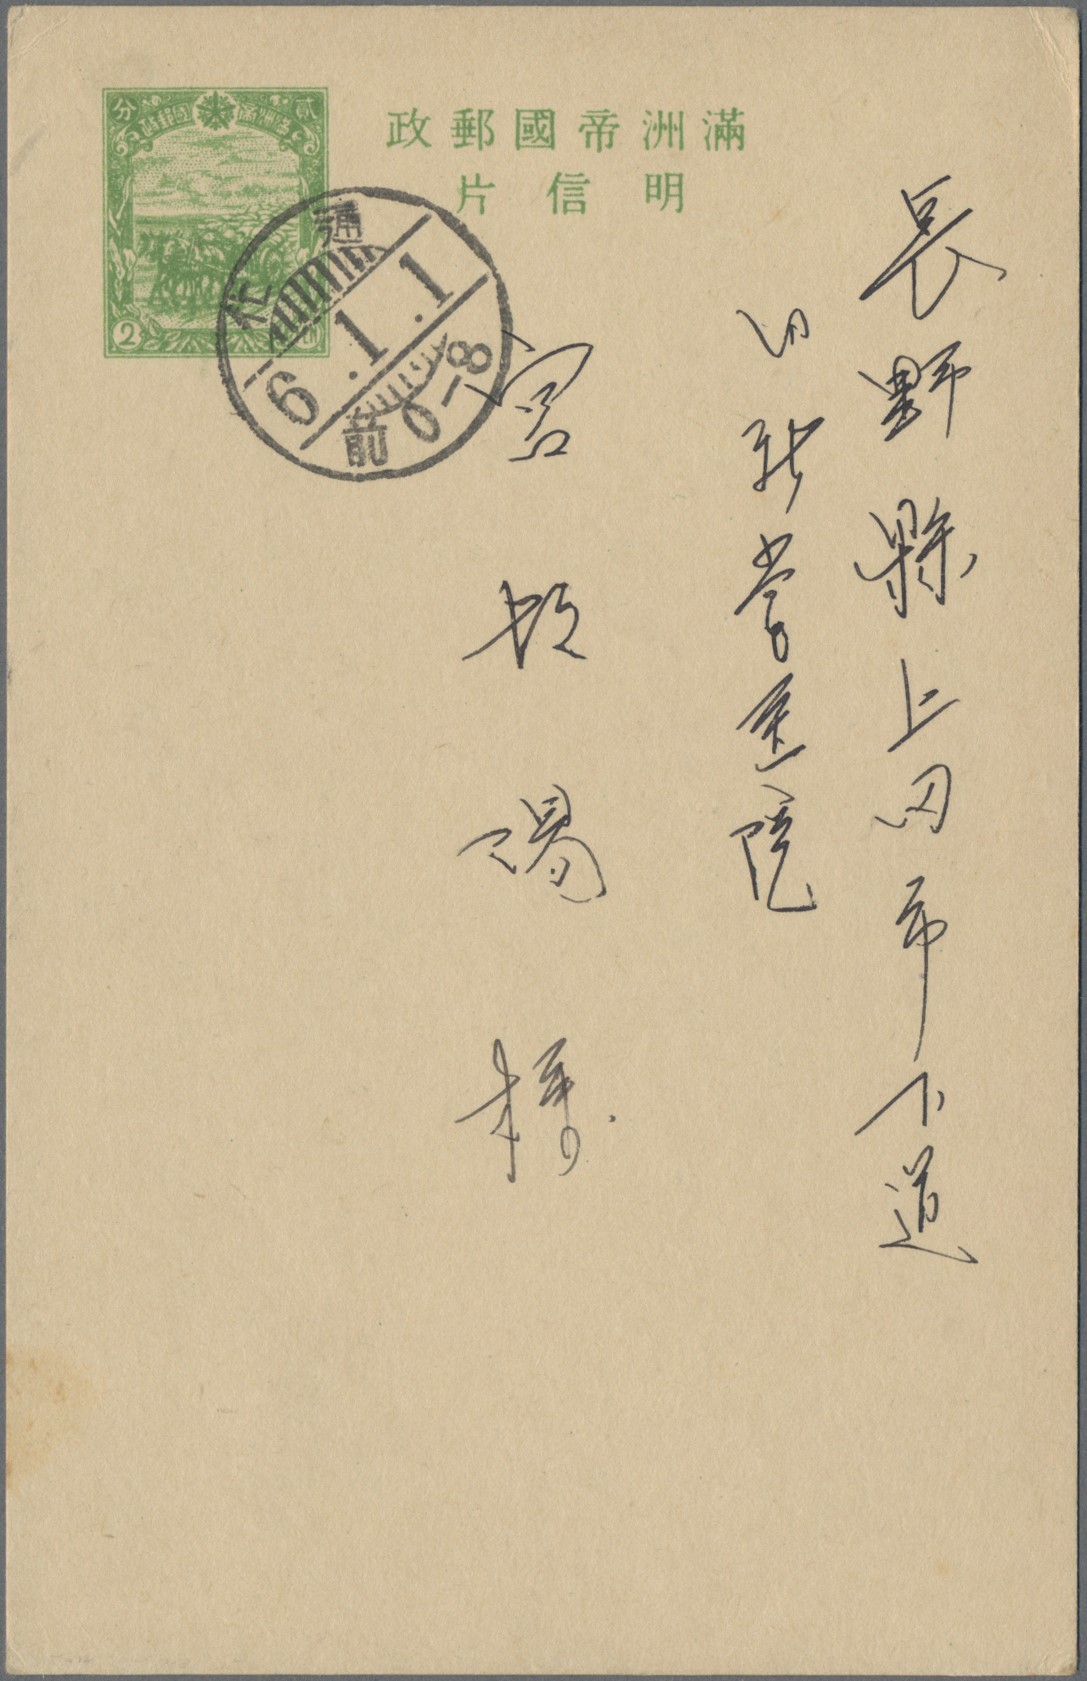 滿洲帝國郵政
明信片
貳分
滿洲帝國郵政
2
通化
6.1.1
前0-8
長野縣上田市下道
小林當医院
宮坂陽様